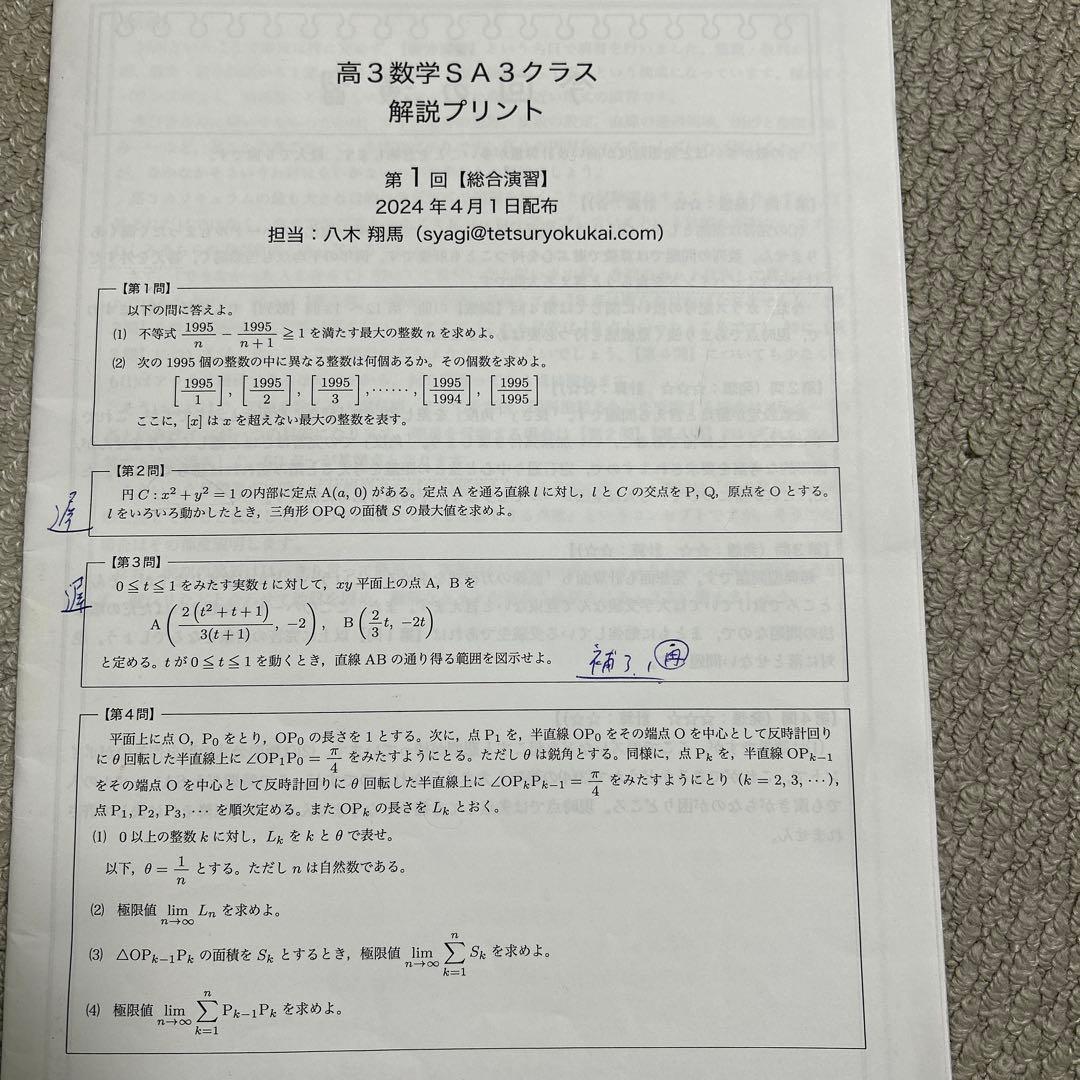 高3数学SA3クラス
解説プリント
第1回【総合演習】
2024年4月1日配布
担当：八木 翔馬（syagi@tetsuryokukai.com）
【第1問】
以下の問に答えよ。
(1) 不等式 1995/n − 1995/(n+1) ≧ 1 を満たす最大の整数 n を求めよ。
(2) 次の 1995 個の整数の中に異なる整数は何個あるか。その個数を求めよ。
[1995/1], [1995/2], [1995/3], ……, [1995/1994], [1995/1995]
ここに, [x] は x を超えない最大の整数を表す。
【第2問】
円 C : x² + y² = 1 の内部に定点 A(a, 0) がある。定点 A を通る直線 l に対し, l と C の交点を P, Q, 原点を O とする。
l をいろいろ動かしたとき, 三角形 OPQ の面積 S の最大値を求めよ。
【第3問】
0 ≦ t ≦ 1 をみたす実数 t に対して, xy 平面上の点 A, B を
A(2(t²+t+1)/3(t+1), −2), B(2/3 t, −2t)
と定める。t が 0 ≦ t ≦ 1 を動くとき, 直線 AB の通り得る範囲を図示せよ。
【第4問】
平面上に点 O, P₀ をとり, OP₀ の長さを 1 とする。次に, 点 P₁ を, 半直線 OP₀ をその端点 O を中心として反時計回り
に θ 回転した半直線上に ∠OP₁P₀ = π/4 をみたすようにとる。ただし θ は鋭角とする。同様に, 点 Pₖ を, 半直線 OPₖ₋₁
をその端点 O を中心として反時計回りに θ 回転した半直線上に ∠OPₖPₖ₋₁ = π/4 をみたすようにとり (k = 2, 3, ⋯),
点 P₁, P₂, P₃, ⋯ を順次定める。また OPₖ の長さを Lₖ とおく。
(1) 0 以上の整数 k に対し, Lₖ を k と θ で表せ。
以下, θ = 1/n とする。ただし n は自然数である。
(2) 極限値 lim n→∞ Lₙ を求めよ。
(3) △OPₖ₋₁Pₖ の面積を Sₖ とするとき, 極限値 lim n→∞ Σ k=1 n Sₖ を求めよ。
(4) 極限値 lim n→∞ Σ k=1 n Pₖ₋₁Pₖ を求めよ。